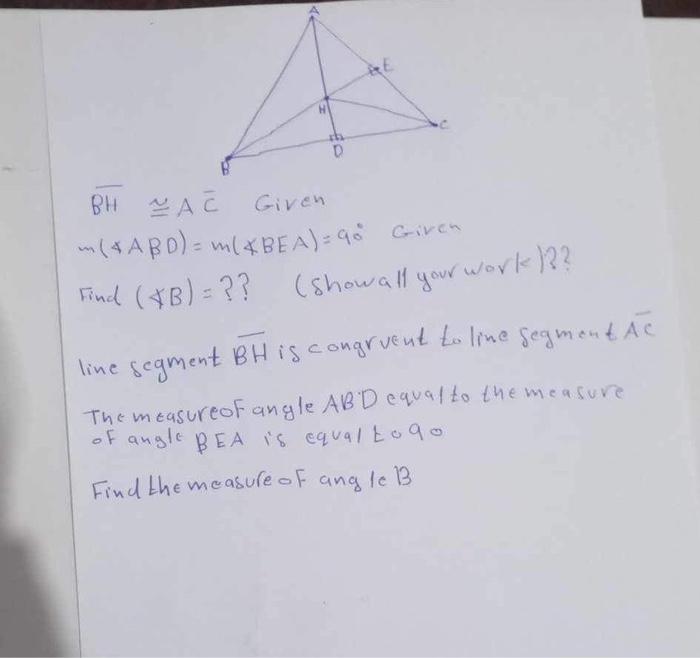 A
E
H
C
B
D
BH ≅ AC Given
m(∢ABD) = m(∢BEA) = 90° Given
Find (∢B) = ?? (Show all your work)??
line segment BH is congruent to line segment AC
The measure of angle ABD equal to the measure
of angle BEA is equal to 90
Find the measure of angle B